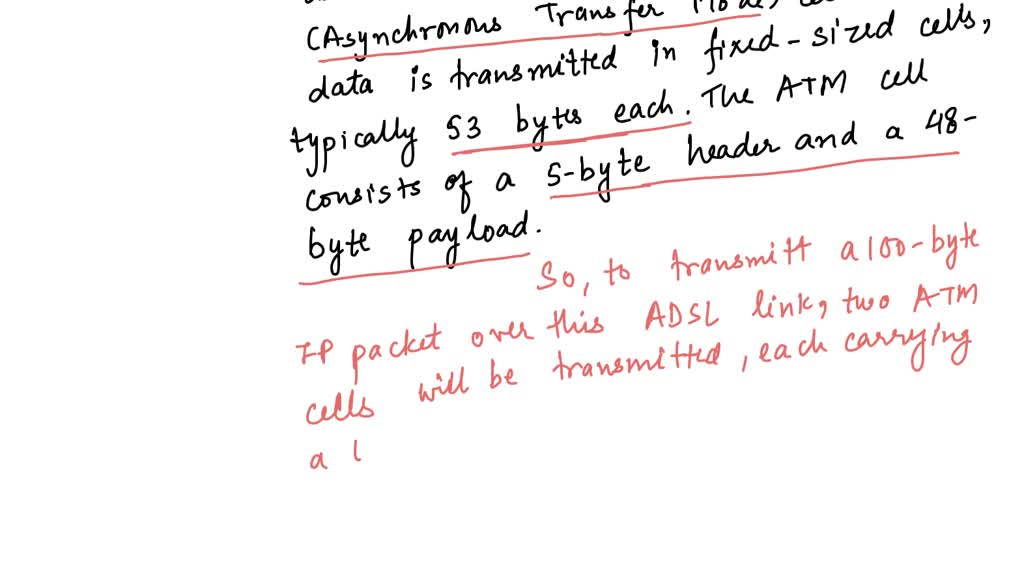 (Asynchronous Transfer Mode,
data is transmitted in fixed-sized cells,
typically 53 bytes each. The ATM cell
consists of a 5-byte header and a 48-
byte payload.
So, to transmitt a 100-byte
IP packet over this ADSL link, two ATM
cells will be transmitted, each carrying
a